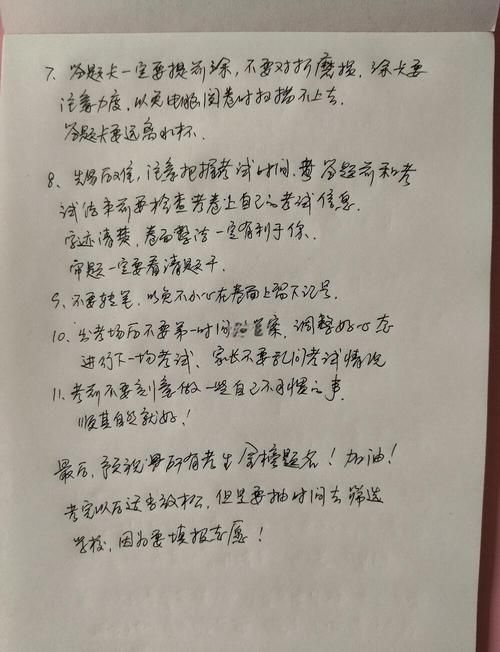 7、答题卡一定要提前涂,不要对折磨损,涂卡要
注意力度,以免电脑阅卷时扫描不上去.
答题卡要远离水杯.
8、先易后难,注意把握考试时间,答题前和考
试结束前要检查考卷上自己的考试信息.
字迹清楚,卷面整洁一定有利于你.
审题一定要看清题干.
9、不要转笔,以免不小心在卷面上留下记号.
10、出考场后不要第一时间答案,调整好心态
进行下一场考试、家长不要乱问考试情况
11、考前不要刻意做一些自己不习惯之事.
顺其自然就好!
最后,预祝所有考生金榜题名!加油!
考完以后适当放松,但是要抽时间去筛选
学校,因为要填报志愿!